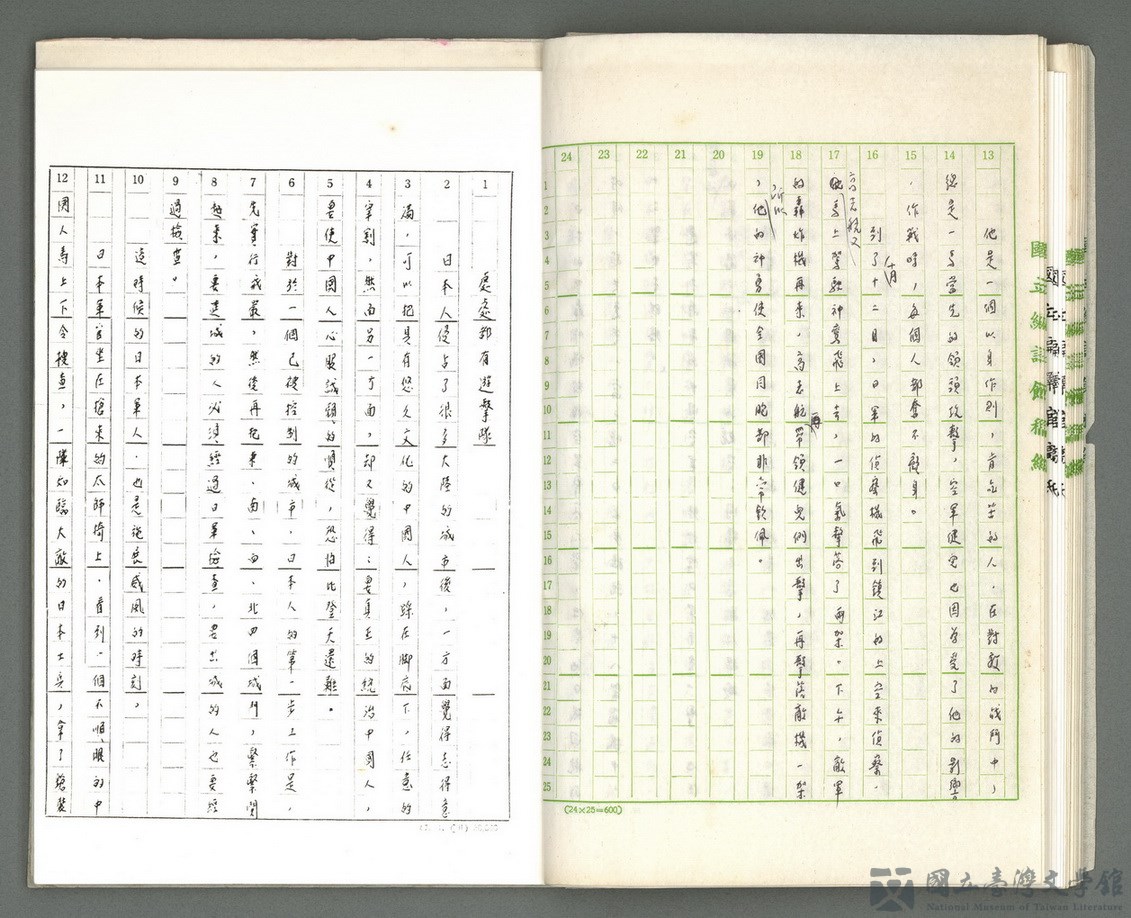 國立編譯館稿紙
13 14 15 16 17 18 19 20 21 22 23 24
1 2 3 4 5 6 7 8 9 10 11 12 13 14 15 16 17 18 19 20 21 22 23 24 25
他是一個以身作則,肯合羣的人,在對敵的戰鬥中,
總是一馬當先的領頭攻擊,空軍健兒也因為受了他的影響
,作戰時,每個人都奮不顧身。
到了十二日,日軍的偵察機飛到鎮江的上空來偵察,
高志航又
馬上駕駛神鷹飛上去,一口氣擊落了兩架。下午,敵軍
的轟炸機再來,高志航再帶領健兒們出擊,再擊落敵機一架
,所以
他的神勇使全國同胞都非常欽佩。
(24×25=600)
1 2 3 4 5 6 7 8 9 10 11 12
處處都有遊擊隊
日本人侵占了很多大陸的城市後,一方面覺得志得意
滿,可以把具有悠久文化的中國人,踩在腳底下,任意的
宰割,然而另一方面,却又覺得:要真正的統治中國人,
要使中國人心服誠領的順從,恐怕比登天還難。
對於一個已被控制的城市,日本人的第一步工作是,
先實行戒嚴,然後再把東、南、西、北四個城門,緊緊關
起來,要進城的人必須經過日軍檢查,要出城的人也要經
過檢查。
這時候的日本軍人,也是最威風的時刻,
日本軍官坐在搶來的太師椅上,看到一個不順眼的中
國人馬上下令搜查,一隊如臨大敵的日本士兵,拿了槍裝
國立臺灣文學館
National Museum of Taiwan Literature